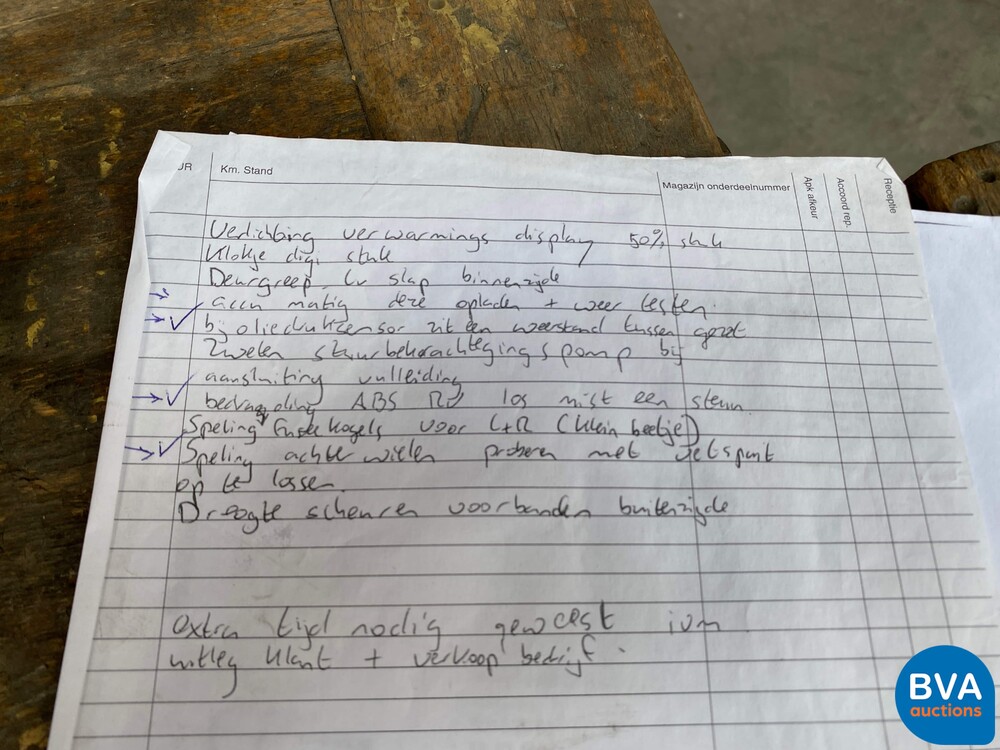 JR Km. Stand Magazijn onderdeelnummer Apk afkeur Accoord rep. Receptie
Verlichting verwarmings display 50% stuk
Klokje dig. stuk
Deurgreep Lv slap binnenzijde
accu matig deze opladen + weer testen.
bij oliedruksensor zit een weerstand tussen gezet
Zweten stuurbekrachteging s pomp bij
aansluiting vulleiding
bedrading ABS los mist een steun
Speling fusee kogels voor L+R (klein beetje)
Speling achter wielen proberen met
op te lossen
Droogte scheuren voorbanden buitenzijde
extra tijd nodig geweest ivm
uitleg klant + verkoop bedrijf.
BVA
auctions